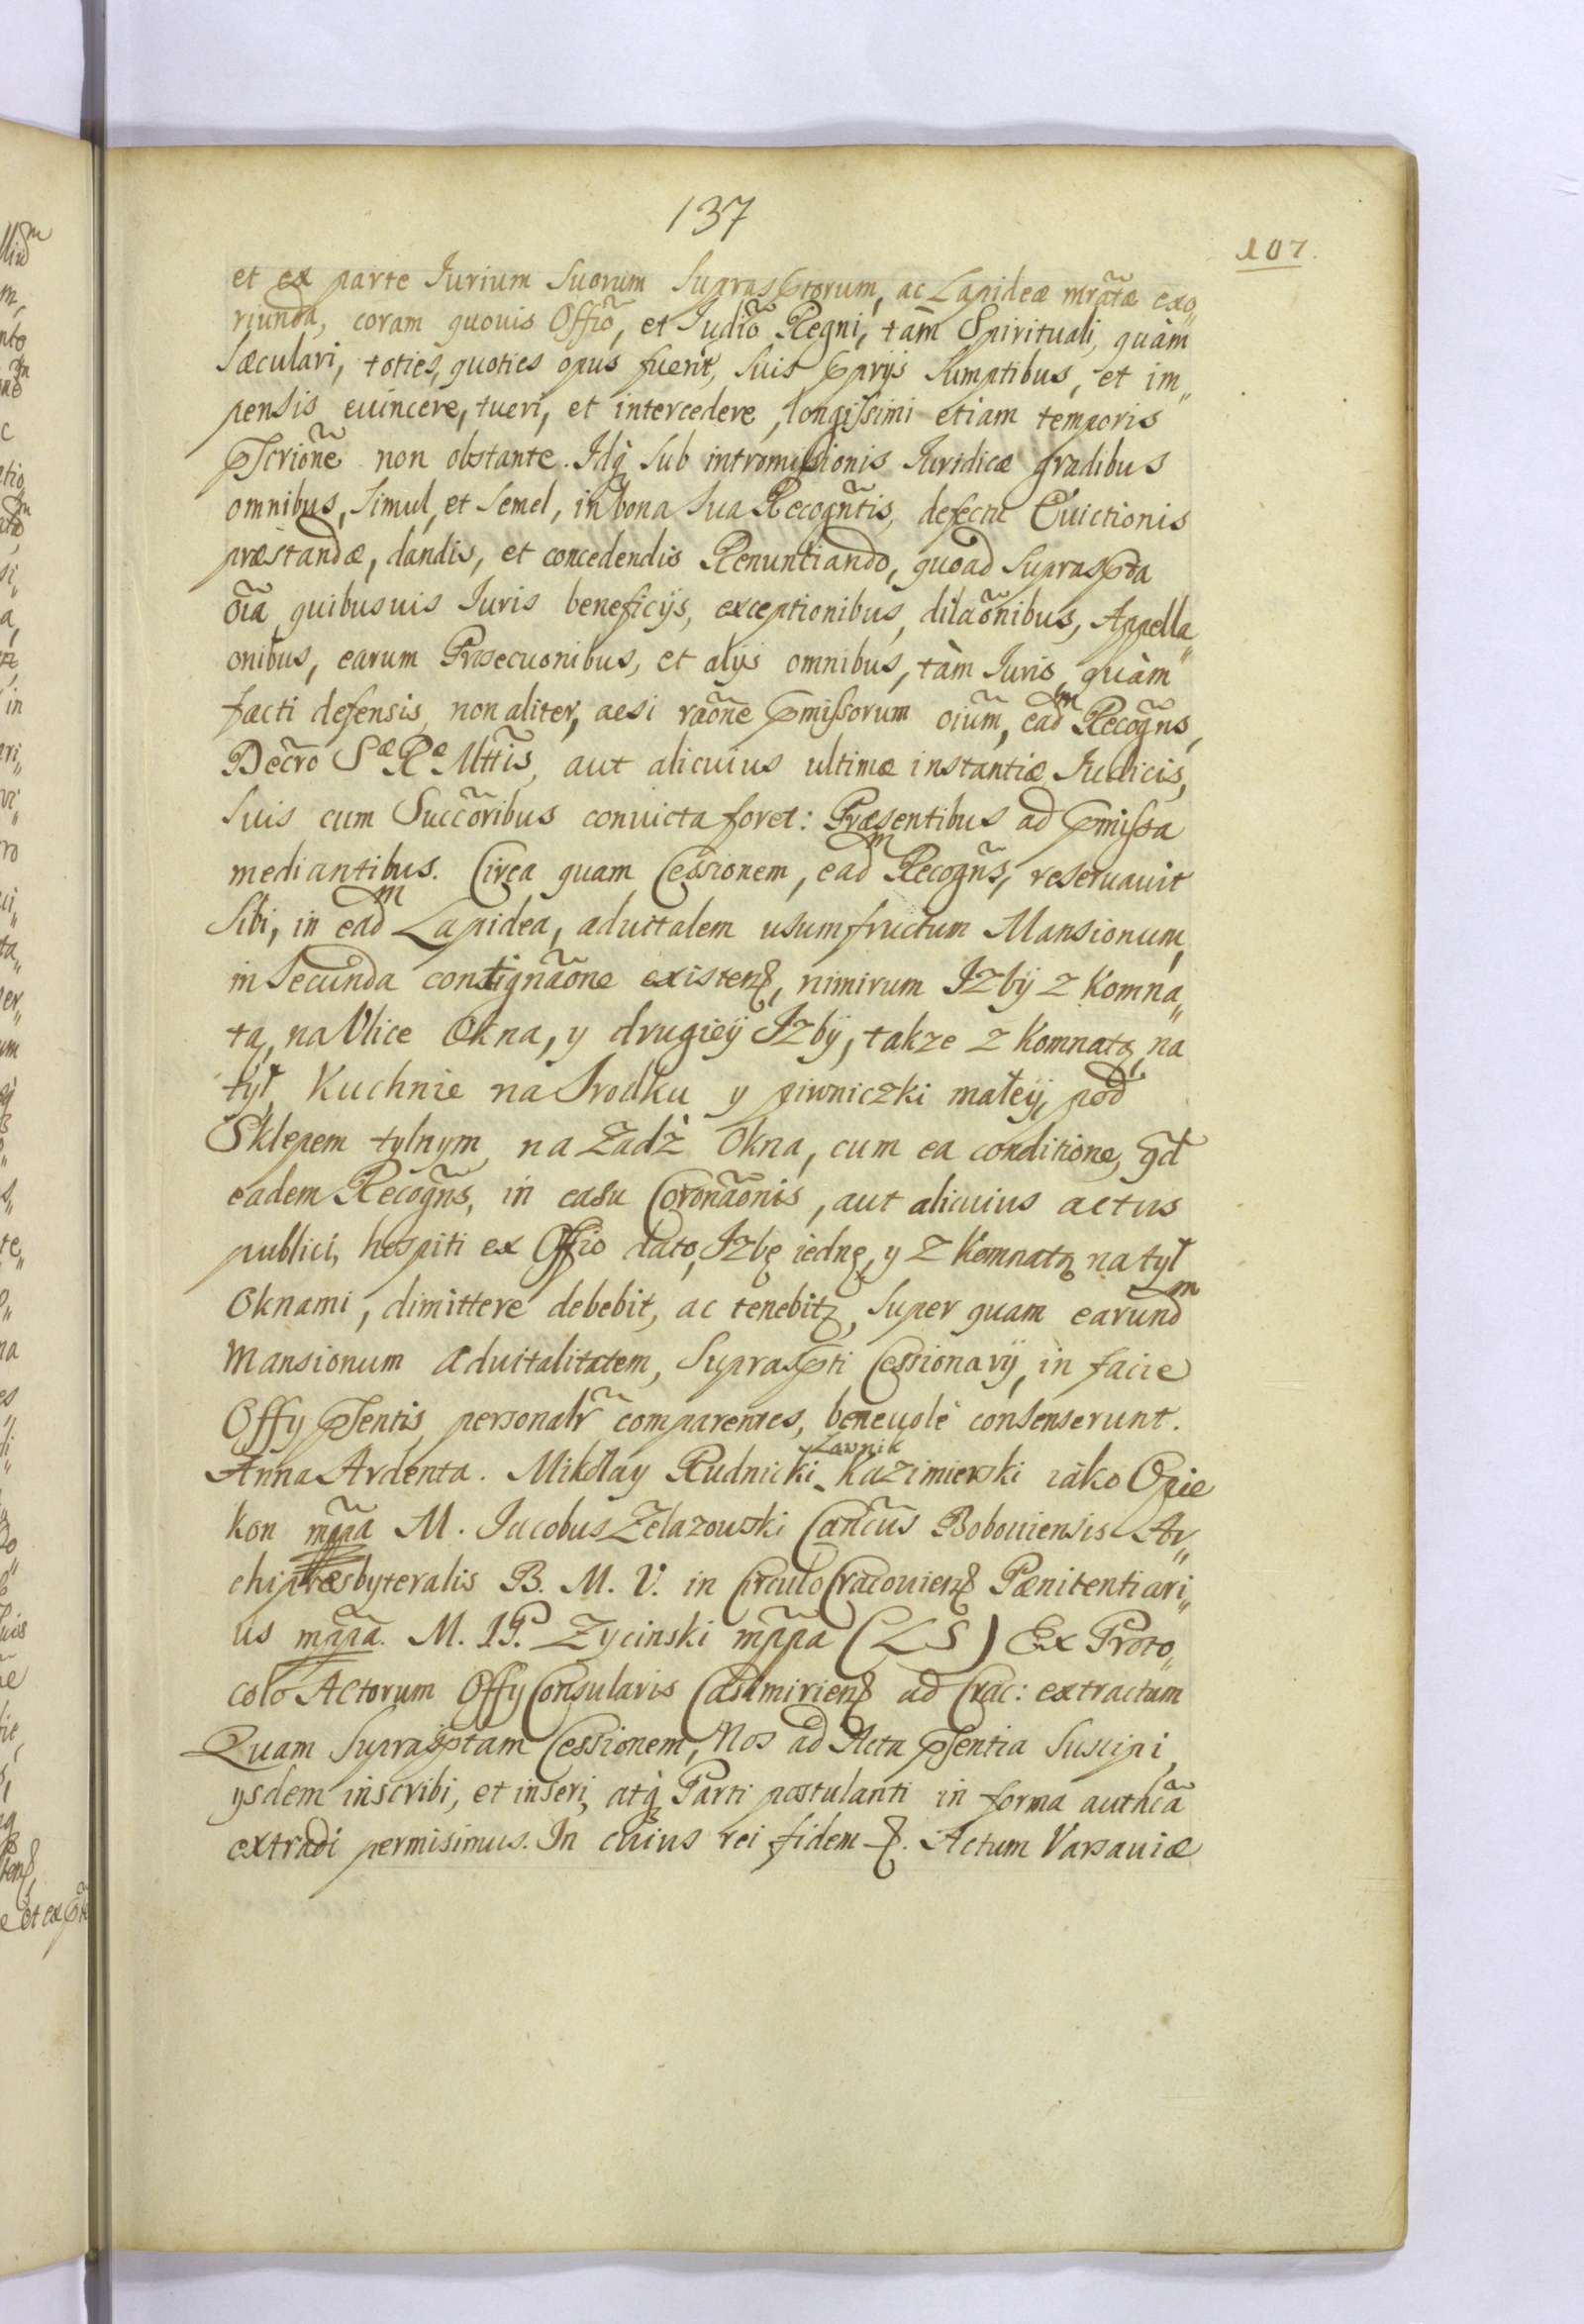 137
107.
et ex parte Iurium Suorum Supras͠ptorum, ac Lapideæ mr̃atæ exo„
riunda, coram quovis Offi͠o, et Iudi͠o Regni, tàm Spirituali, quàm
Sæculari, toties, quoties opus fuerit, Suis p͠prijs Sumptibus, et im„
pensis evincere, tueri, et intercedere, longissimi etiam temporis
p͠scrio͠ne non obstante. Idq̀ Sub intromissionis Iuridicæ gradibus
omnibus, Simul, et Semel, in bona Sua Recogn͠tis, defectu Evictionis
præstandæ, dandis, et concedendis Renuntiando, quoad Supraspta
oi͠a quibusuis Iuris beneficijs, exceptionibus, dilao͠nibus, Appella„
onibus, earum Prosecuonibus, et alijs omnibus, tàm Iuris, quàm
facti defensis, non aliter, acsi rao͠ne p͠missorum oiu͠m, eadm Recogn͠s,
Decr͠o Sæ Re Mtti͠s, aut alicuius ultimæ instantiæ Iudicis,
Suis cum Succo͠ribus convicta foret: Præsentibus ad p͠missa
mediantibus. Circa quam Cessionem, eadm Recogn͠s, reservavit
Sibi, in eadm Lapidea, advitalem usumfructum Mansionum,
in Secunda contignao͠ne existen͠, nimirum Izbÿ z Komna„
tą, na Ulice Okna, y drugieÿ Izbÿ, takze z Komnatą, na
tÿł, Kuchnie na Srodku y piwniczki małeÿ, pod
Sklepem tylnym, na Zadź Okna, cum ea conditione, qd͠
eadem Recogn͠s, in casu Coronao͠nis, aut alicuius actus
publici, hospiti ex Offio dato, Izbę iednę, y z Komnatą na tył
Oknami, dimittere debebit, ac tenebitꝫ, Super quam earundm
Mansionum Advitalitatem, Supraspti Cessionarÿ, in facie
Offÿ p͠sentis personalr͠ comparentes, benevolè consenserunt.
Anna Ardenta. Mikołay Rudnicki Ławnik Kazimierski iáko Opie
kon mp͠pa M. Iacobus Zelazowski Canc͠us Boboviensis Ar„
chipresbyteralis B. M. V. in Circulo Cracovien͠ Pænitentiari„
us mp͠pa. M. I. P. Zycinski mp͠pa (LS) Ex Proto„
colo Actorum Offÿ Consularis Casimirien͠ ad Crac: extractum
Quam Supras͠ptam Cessionem, Nos ad Acta p͠sentia Suscipi,
ÿsdem inscribi, et inseri, atq̀ Parti postulanti in forma authc͠a
extradi permisimus. In cuius rei fidem &. Actum Varsaviæ